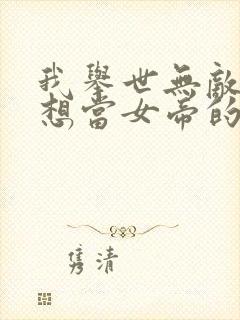 我舉世無敵
想當女帝的
雋清